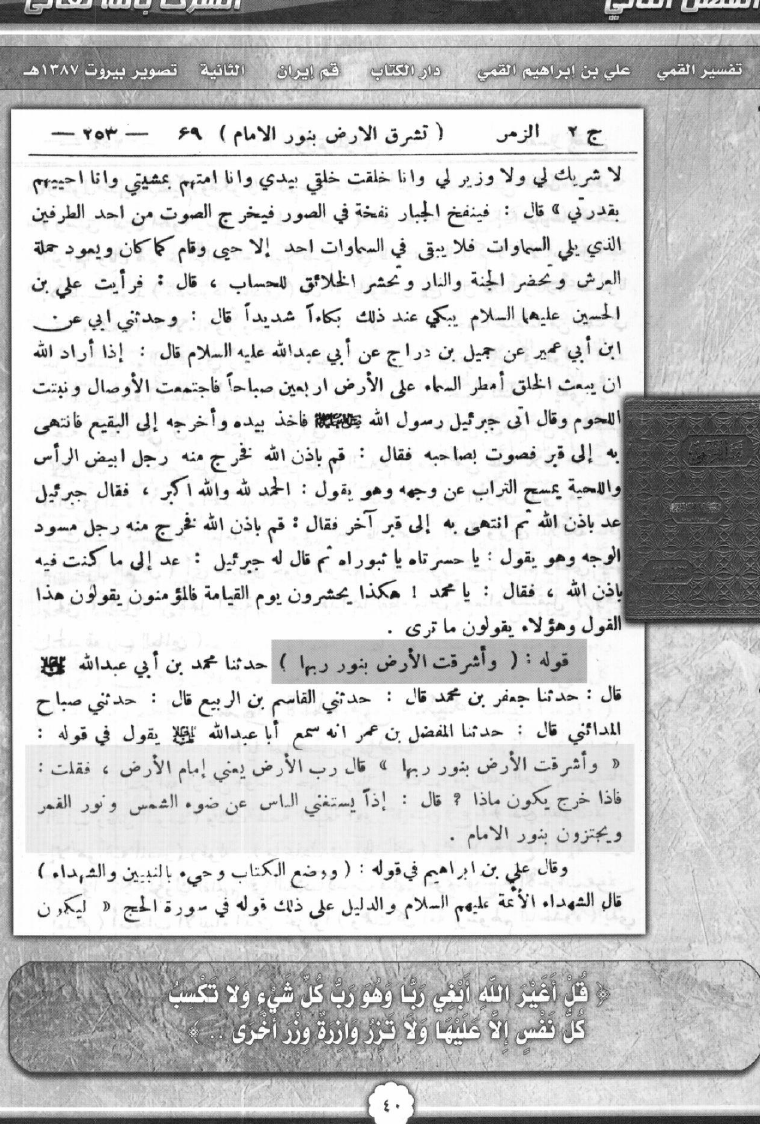 الفصل الثاني
الشرك بالله تعالى
تفسير القمي علي بن ابراهيم القمي دار الكتاب قم إيران الثانية تصوير بيروت ١٣٨٧هـ
ج ٢ الزمر ( تشرق الارض بنور الامام ) ٦٩ — ٢٥٣ —
لا شريك لي ولا وزير لي وانا خلقت خلقي بيدي وانا امتهم بمشيتي وانا احييهم
بقدرتي » قال : فينفخ الجبار نفخة في الصور فيخرج الصوت من احد الطرفين
الذي يلي السماوات فلا يبقى في السماوات احد إلا حيى وقام كما كان ويعود حملة
العرش وتحضر الجنة والنار وتحشر الخلائق للحساب ، قال : فرأيت علي بن
الحسين عليهما السلام يبكي عند ذلك بكاءاً شديداً قال : وحدثني ابي عن
ابن أبي عمير عن جميل بن دراج عن أبي عبدالله عليه السلام قال : إذا أراد الله
ان يبعث الخلق أمطر السماء على الأرض اربعين صباحاً فاجتمعت الأوصال ونبتت
اللحوم وقال اتى جبرئيل رسول الله فاخذ بيده وأخرجه إلى البقيع فانتهى
به إلى قبر فصوت بصاحبه فقال : قم باذن الله فخرج منه رجل ابيض الرأس
واللحية يمسح التراب عن وجهه وهو يقول : الحمد لله والله اكبر ، فقال جبرئيل
عد باذن الله ثم انتهى به إلى قبر آخر فقال : قم باذن الله فخرج منه رجل مسود
الوجه وهو يقول : يا حسرتاه يا ثبوراه ثم قال له جبرئيل : عد إلى ما كنت فيه
باذن الله ، فقال : يا محمد ! هكذا يحشرون يوم القيامة فالمؤمنون يقولون هذا
القول وهؤلاء يقولون ما ترى .
قوله : ( وأشرقت الأرض بنور ربها ) حدثنا محمد بن أبي عبدالله
قال : حدثنا جعفر بن محمد قال : حدثني القاسم بن الربيع قال : حدثني صباح
المدائني قال : حدثنا المفضل بن عمر انه سمع أبا عبدالله يقول في قوله :
« وأشرقت الأرض بنور ربها » قال رب الأرض يعني إمام الأرض ، فقلت :
فاذا خرج يكون ماذا ? قال : إذاً يستغني الناس عن ضوء الشمس ونور القمر
ويجتزون بنور الامام .
وقال علي بن ابراهيم في قوله : ( ووضع الكتاب وجيء بالنبيين والشهداء )
قال الشهداء الأئمة عليهم السلام والدليل على ذلك قوله في سورة الحج « ليكون
﴿ قُلْ أَغَيْرَ اللَّهِ أَبْغِي رَبًّا وَهُوَ رَبُّ كُلِّ شَيْءٍ ولا تَكْسِبُ
كُلُّ نَفْسٍ إِلاَّ عَلَيْهَا وَلَا تَزِرُ وازِرةٌ وِزْر أُخْرى .. ﴾
٤٠